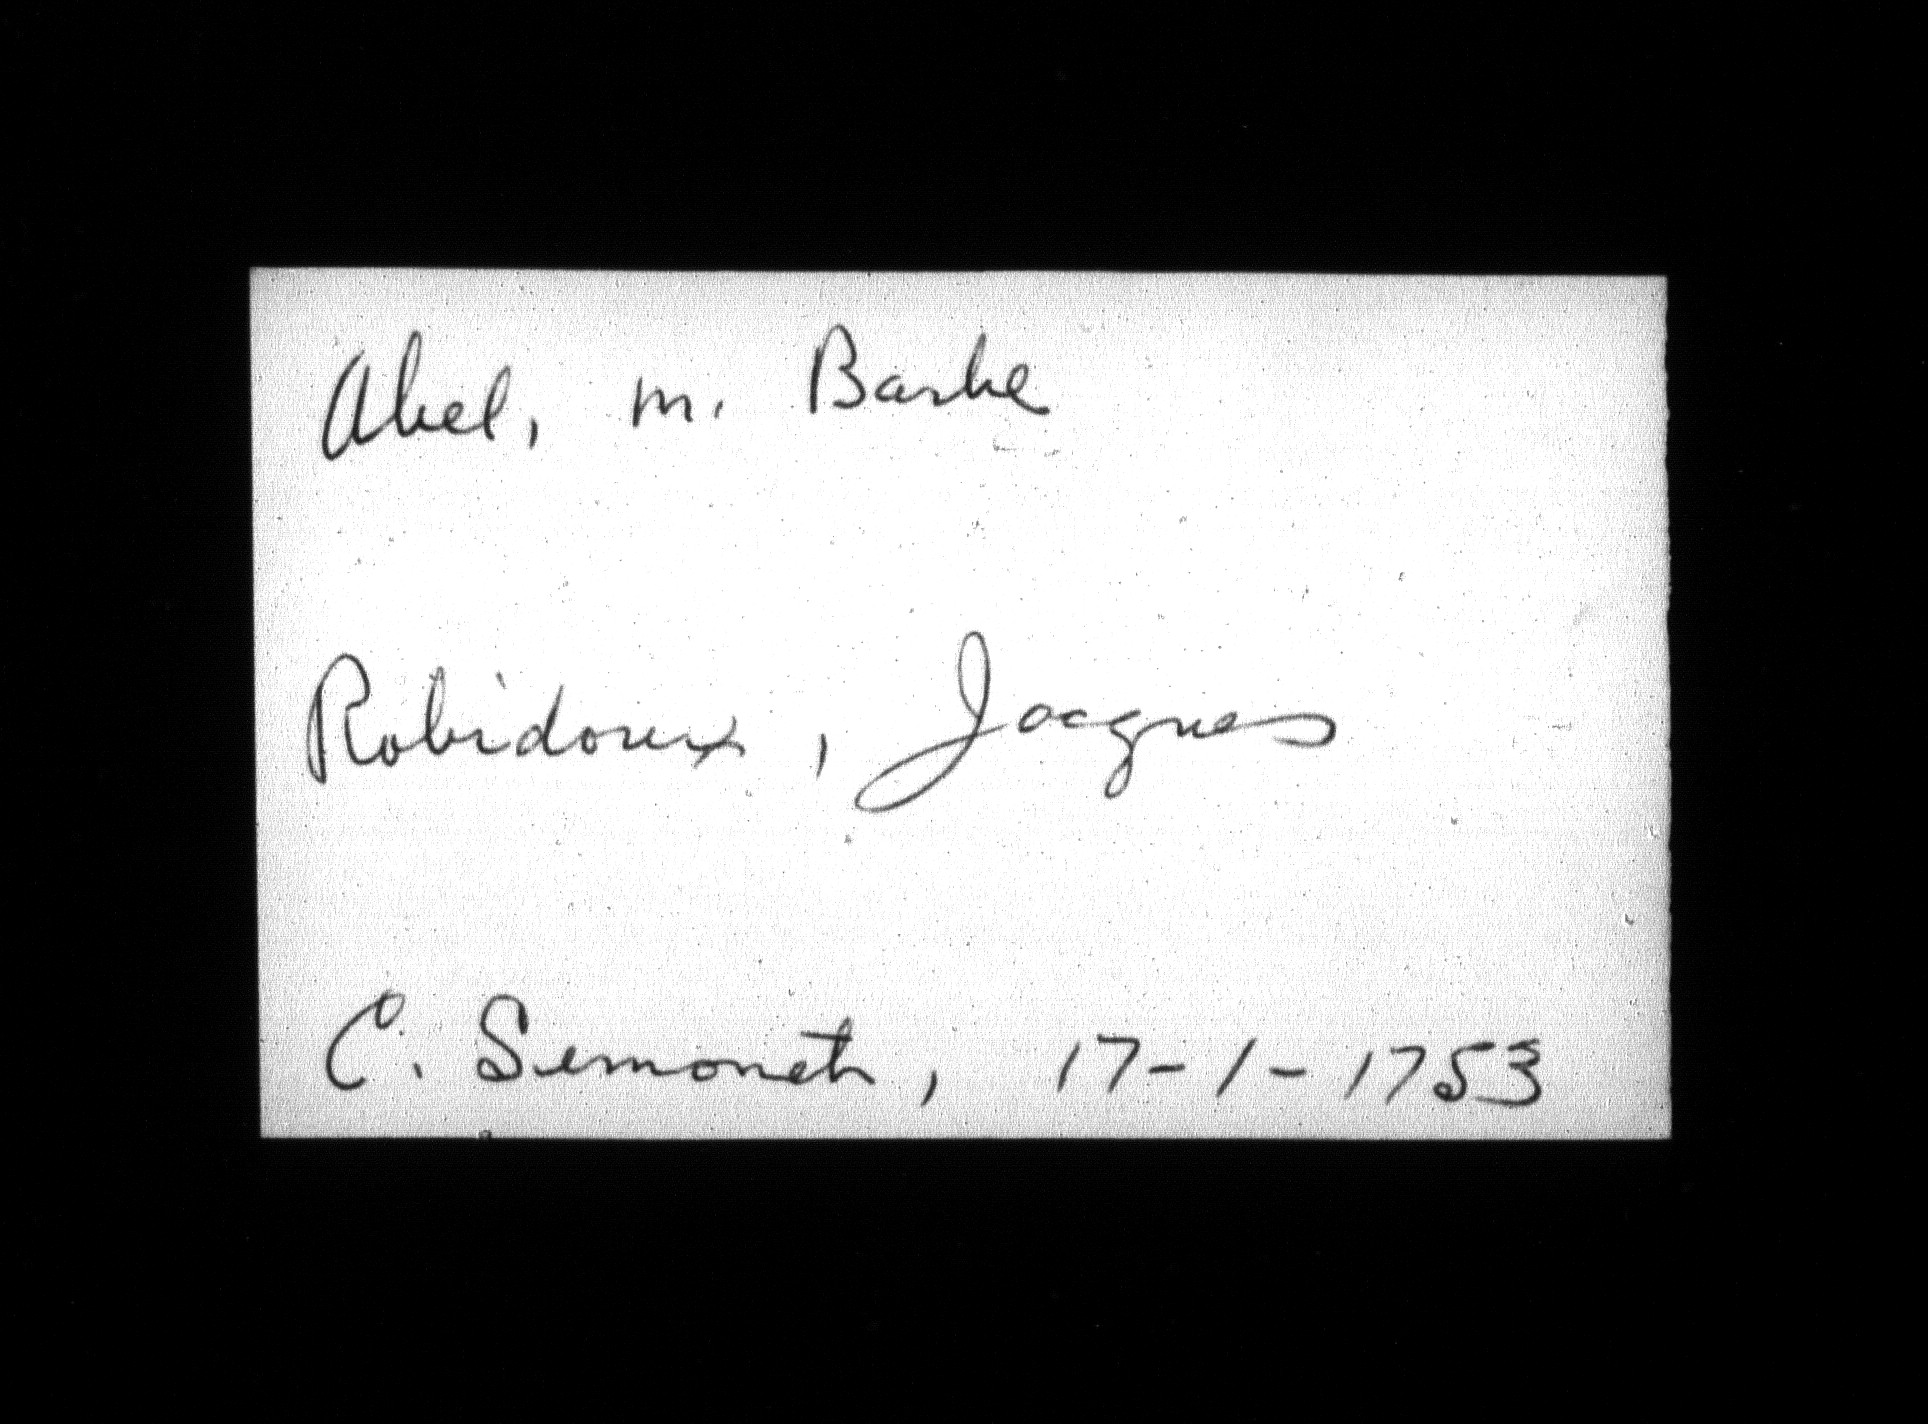 Abel, M. Barbe
Robidoux, Jacques
C. Simoneth, 17-1-1753